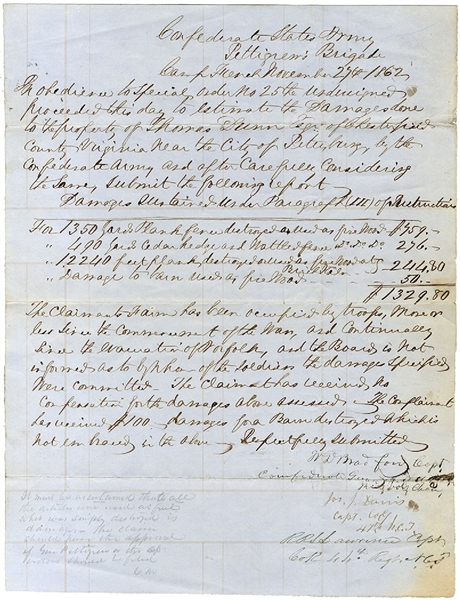 Confederate States Army
Pettigrew's Brigade
Camp French November 27th 1862
In obedience to Special order No 25 the undersigned
proceeded this day to estimate the Damages done
to the property of Thomas Dunn Esqr of Chesterfield
County Virginia Near the City of Petersburg by the
Confederate Army and after Carefully Considering
the Same, submit the following report
Damages Sustained Under Paragraph (III) of Instructions
For 1350 yard Plank fence destroyed as used as fire Wood $759.–
" 490 yard Cedar hedge and Wattled fence Do Do Do 276.–
" 12240 feet plank destroyed & used as fire Wood at 244.80
" Damage to barn used as fire Wood 50.–
$1329.80
The Claimants Farm has been occupied by troops, More or
less Since the Commencement of the War, and Continually
Since the evacuation of Norfolk, and the Board is not
informed as to by whom of the Soldiers the damage Specified
Were committed. The Claimant has received no
Compensation for the damages above assessed. The Complainant
has received $100. damages for a Barn destroyed which is
not embraced in the above. Respectfully Submitted
W D Bradford Capt
Confederate
Jos. J. Davis
Capt Co G
47th N.C.T
R C Lawrence Capt
Co 44th Regt N C T
It must be ascertained that all
the
was
damages. The claim
should have the approval
of Gen Pettigrew